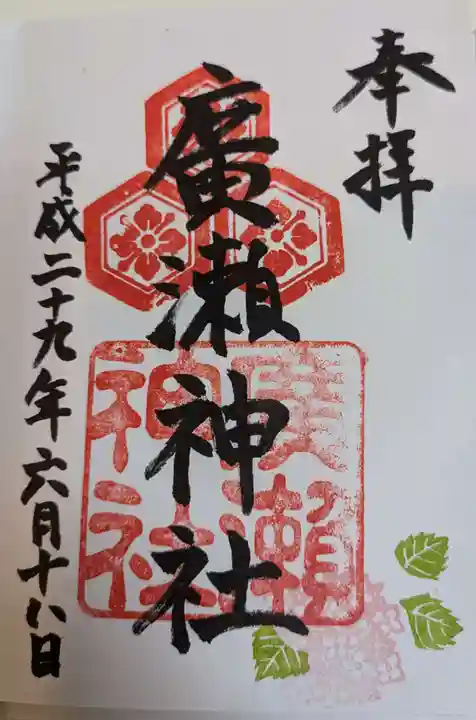 奉拝
廣瀬神社
平成二十九年六月十八日
廣瀬
神社